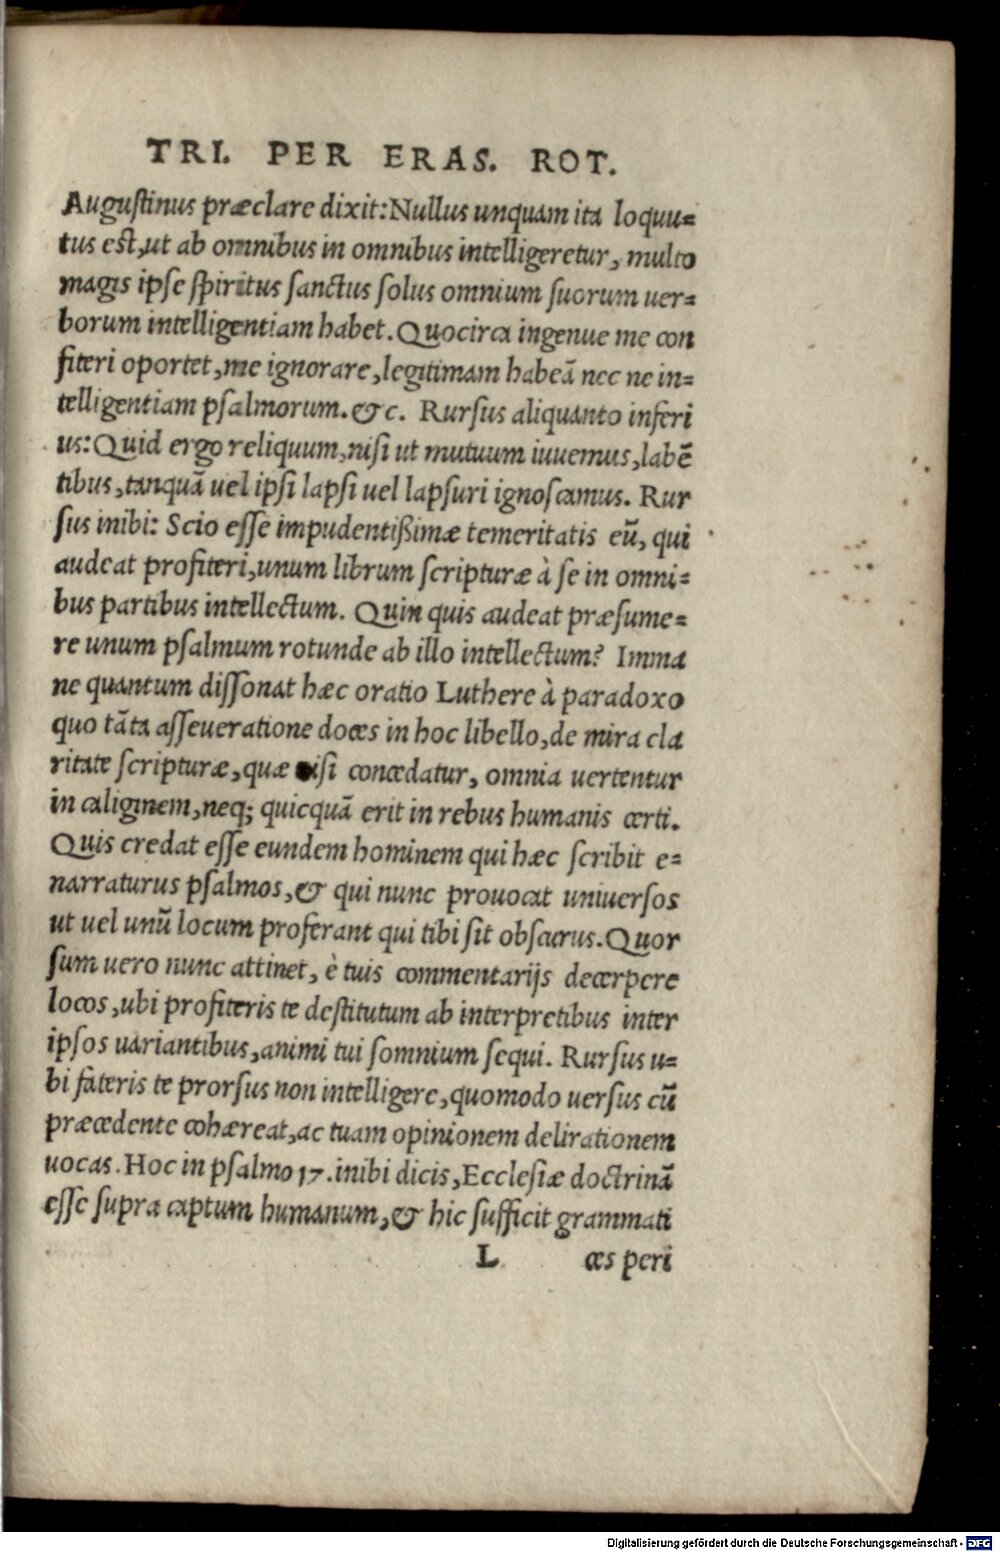 TRI. PER ERAS. ROT.
Auguſtinus præclare dixit: Nullus unquam ita loquu=
tus est, ut ab omnibus in omnibus intelligeretur, multo
magis ipſe ſpiritus ſanctus ſolus omnium ſuorum uer=
borum intelligentiam habet. Quocirca ingenue me con
fiteri oportet, me ignorare, legitimam habeā nec ne in=
telligentiam pſalmorum. &c. Rurſus aliquanto inferi
us: Quid ergo reliquum, niſi ut mutuum iuuemus, labē
tibus, tanquā uel ipſi lapſi uel lapſuri ignoſcamus. Rur
ſus inibi: Scio eſſe impudentißimæ temeritatis eū, qui
audeat profiteri, unum librum ſcripturæ à ſe in omni=
bus partibus intellectum. Quin quis audeat præſume=
re unum pſalmum rotunde ab illo intellectum? Imma
ne quantum diſſonat hæc oratio Luthere à paradoxo
quo tāta aſſeueratione doces in hoc libello, de mira cla
ritate ſcripturæ, quæ niſi concedatur, omnia uertentur
in caliginem, neq; quicquā erit in rebus humanis certi.
Quis credat eſſe eundem hominem qui hæc ſcribit e=
narraturus pſalmos, & qui nunc prouocat uniuerſos
ut uel unū locum proferant qui tibi ſit obſcurus. Quor
ſum uero nunc attinet, è tuis commentarijs decerpere
locos, ubi profiteris te deſtitutum ab interpretibus inter
ipſos uariantibus, animi tui ſomnium ſequi. Rurſus u=
bi fateris te prorſus non intelligere, quomodo uerſus cū
præcedente cohæreat, ac tuam opinionem delirationem
uocas. Hoc in pſalmo 17. inibi dicis, Eccleſiæ doctrinā
eſſe ſupra captum humanum, & hic ſufficit grammati
L ces peri
Digitalisierung gefördert durch die Deutsche Forschungsgemeinschaft - DFG